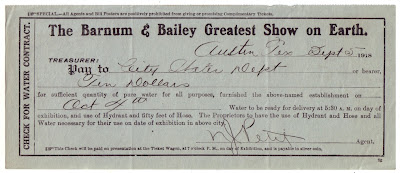 SPECIAL.—All Agents and Bill Posters are positively prohibited from giving or promising Complimentary Tickets.
CHECK FOR WATER CONTRACT.
The Barnum & Bailey Greatest Show on Earth.
Austin Tex Sept 5 1908
TREASURER:
Pay to City Water Dept or bearer,
Ten Dollars
for sufficient quantity of pure water for all purposes, furnished the above-named establishment on
Oct 9th Water to be ready for delivery at 5:30 A. M. on day of
exhibition, and use of Hydrant and fifty feet of Hose. The Proprietors to have the use of Hydrant and Hose and all
Water necessary for their use on date of exhibition in above city.
Agent.
This Check will be paid on presentation at the Ticket Wagon, at 7 o'clock P. M., on day of Exhibition, and is payable in silver coin.